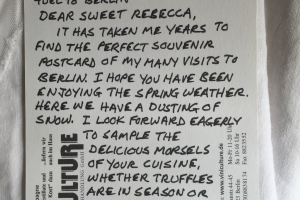 DEAR SWEET REBECCA,
IT HAS TAKEN ME YEARS TO
FIND THE PERFECT SOUVENIR
POSTCARD OF MY MANY VISITS TO
BERLIN. I HOPE YOU HAVE BEEN
ENJOYING THE SPRING WEATHER.
HERE WE HAVE A DUSTING OF
SNOW. I LOOK FORWARD EAGERLY
TO SAMPLE THE
DELICIOUS MORSELS
OF YOUR CUISINE,
WHETHER TRUFFLES
ARE IN SEASON OR
ULTURE
www.viniculture.de
Mo-Fr 11-20 Uhr
Sa 10-16 Uhr